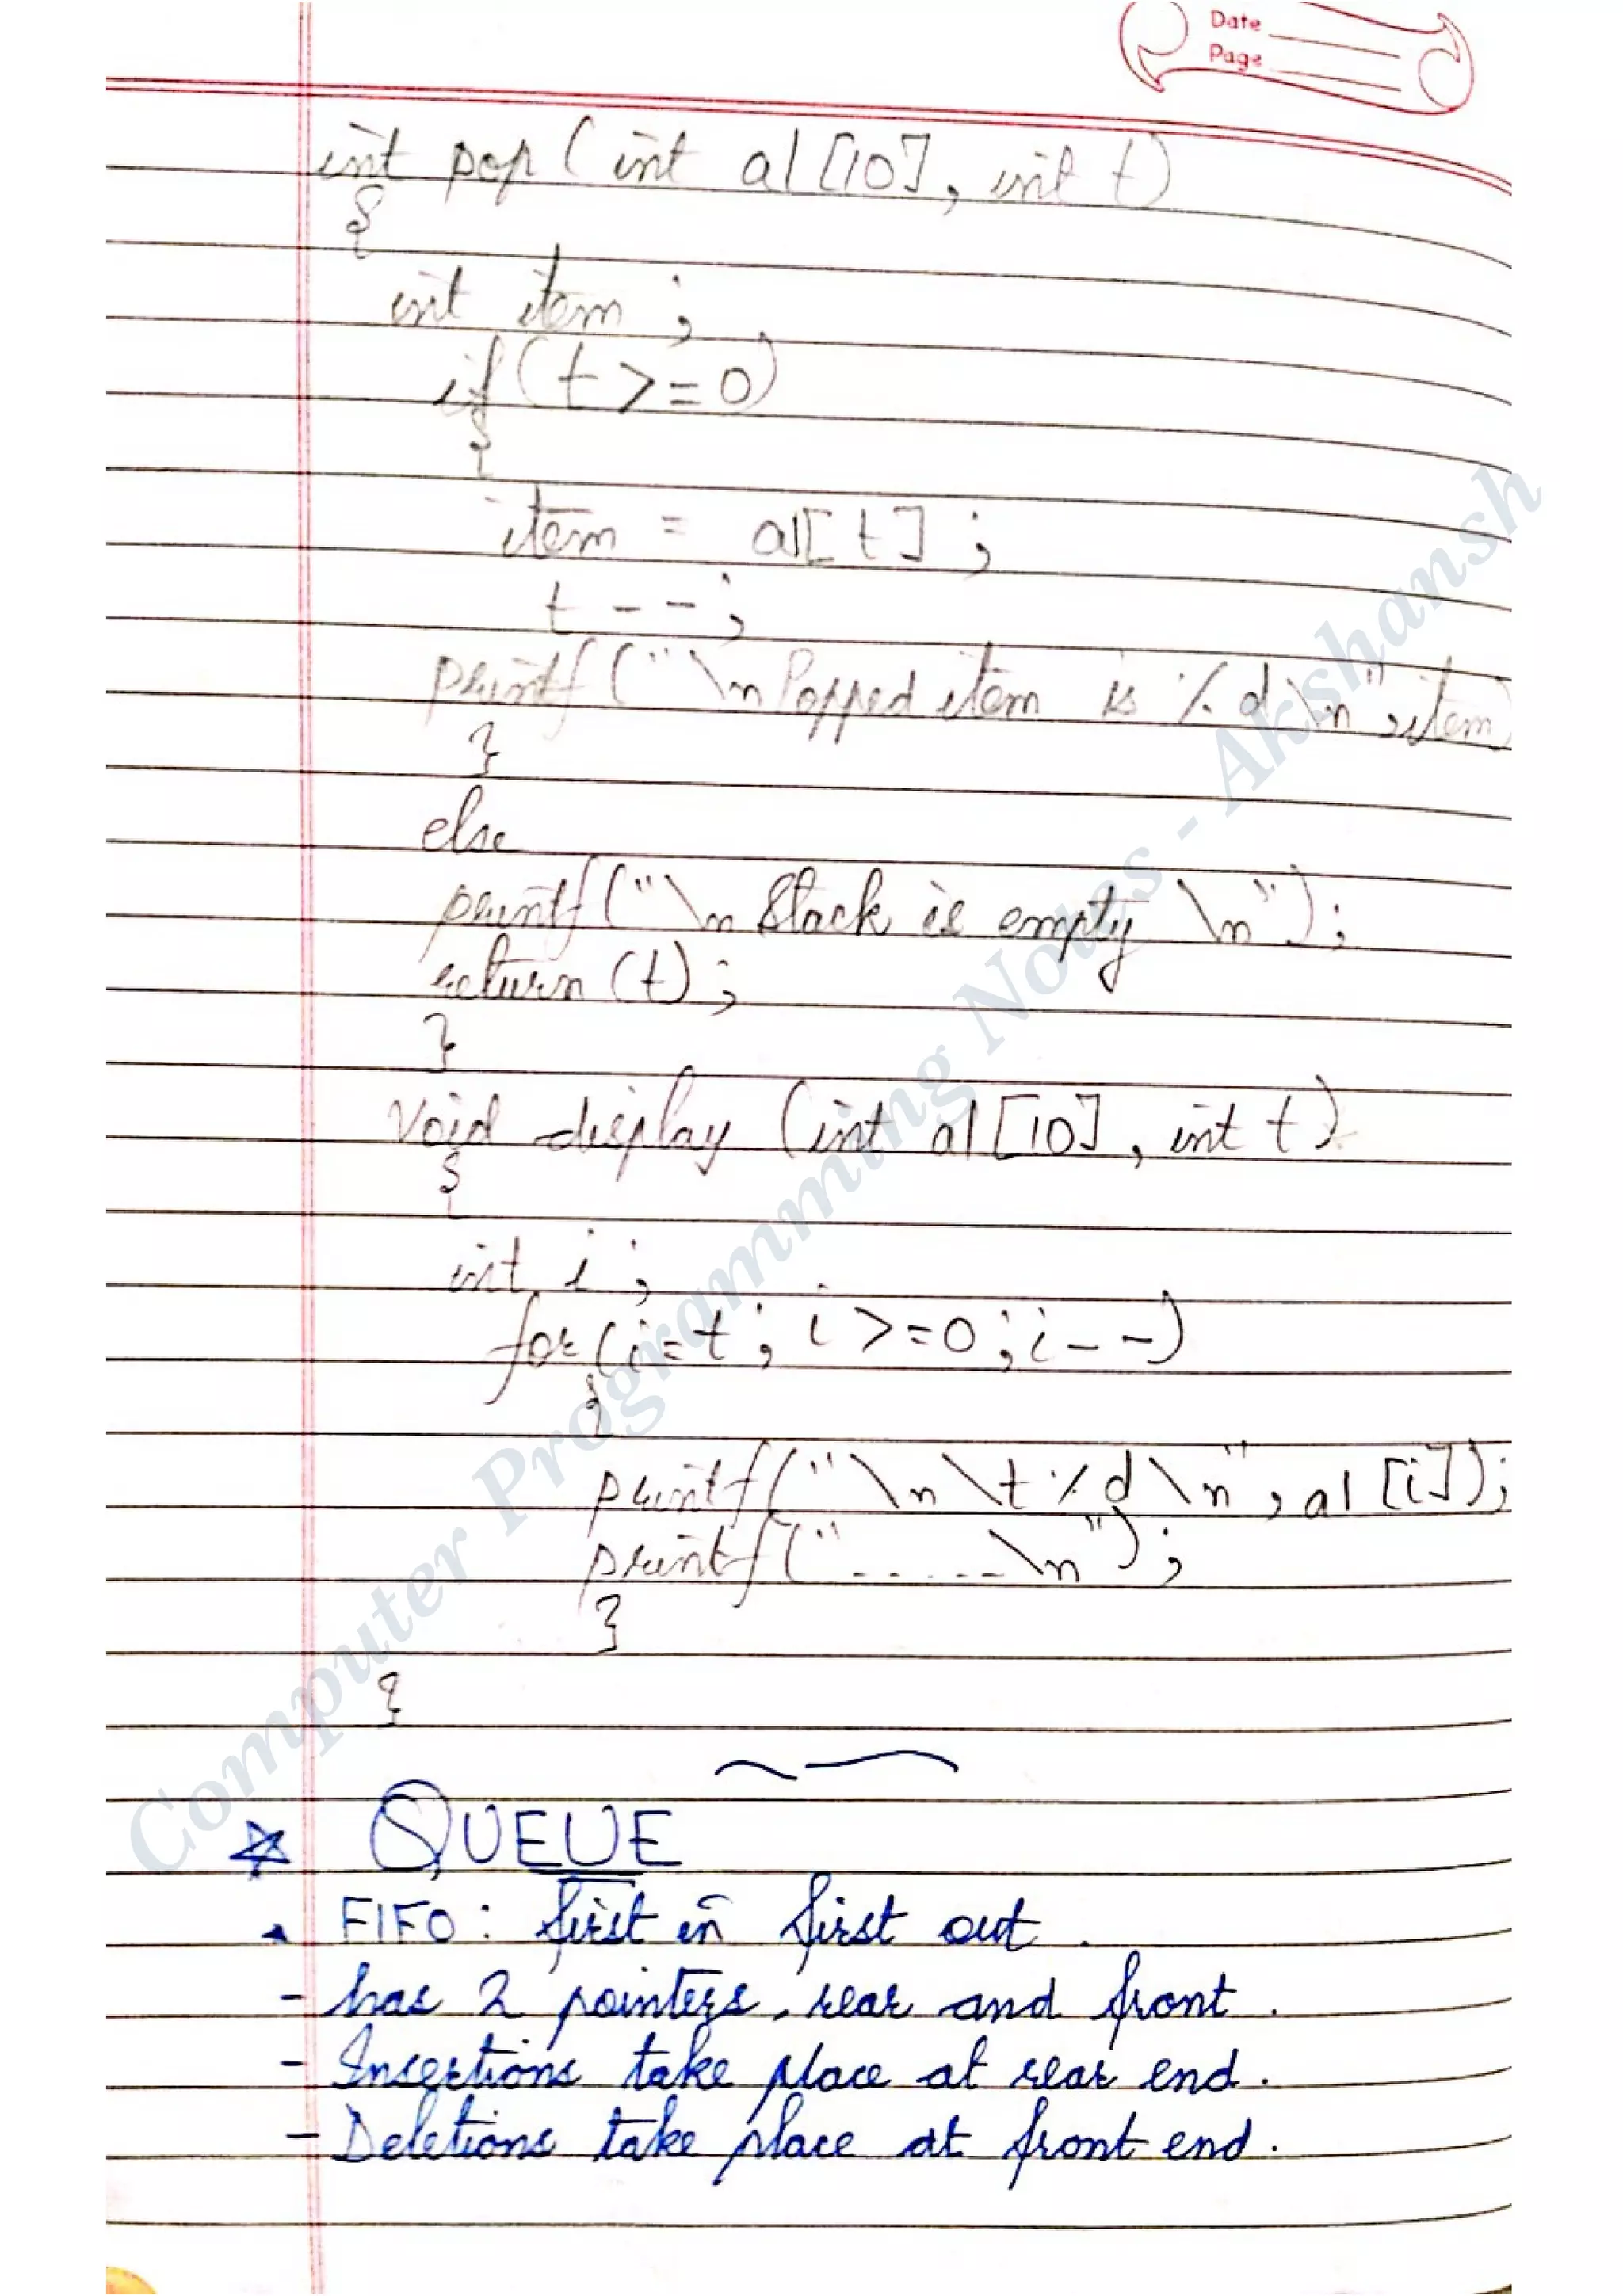 Date
Page
int pop (int al[10], int t)
{
int item ;
if (t >= 0)
{
item = al[t] ;
t -- ;
printf ("\n Popped item is %d \n", item)
}
else
printf ("\n Stack is empty \n") ;
return (t) ;
}
void display (int al [10], int t)
{
int i ;
for (i=t ; i >=0 ; i--)
{
printf ("\n \t %d \n", al [i]);
printf ("-----\n") ;
}
{
QUEUE
FIFO : first in first out .
- has 2 pointers, rear and front .
- Insertions take place at rear end .
- Deletions take place at front end .
Computer Programming Notes - Akshansh